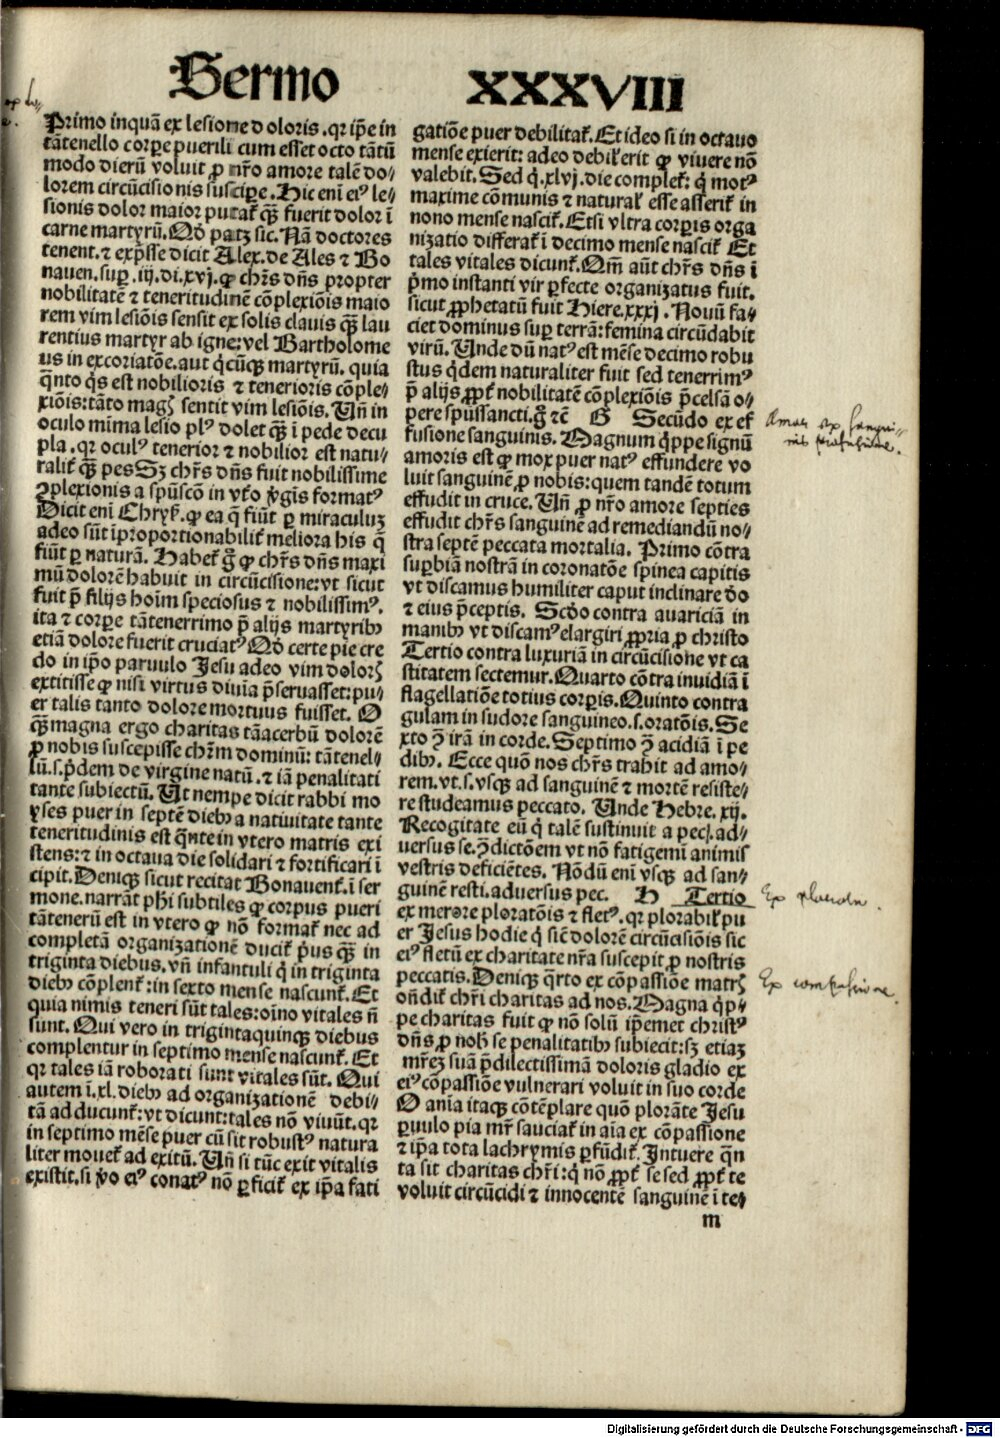 Sermo XXXVIII
Primo inquā ex lesione doloris. qr ip̄e in
tātenello corpe puerili cum esset octo tātū
modo dierū voluit ꝓ nr̄o amore talē do⸗
lorem circūcisionis suscipe. Hic enī eiꝰ le⸗
sionis dolor maior putat̄ qȝ̄ fuerit dolor ī
carne martyrū. Qd̄ patꝫ sic. Nā doctores
tenent. ⁊ exp̄sse dicit Alex. de Ales ⁊ Bo
nauen. sup̄ .iij. di. xvj. ꝙ chr̄s dn̄s propter
nobilitatē ⁊ teneritudinē cōplexiōis maio
rem vim lesiōis sensit ex solis clauis qȝ̄ lau
rentius martyr ab igne: vel Bartholome
us in excoriatōe. aut q̇cūqȝ martyrū. quia
q̄nto q̇s est nobilioris ⁊ tenerioris cōple⸗
xiōis: tāto magꝭ sentit vim lesiōis. Vn̄ in
oculo mima lesio plꝰ dolet qȝ̄ ī pede decu
pla. qr oculꝰ tenerior ⁊ nobilior est natu⸗
ralit̄ qȝ̄ pes Sꝫ chr̄s dn̄s fuit nobilissime
ꝯplexionis a spūscō in vt̄o v̇gīs formatꝰ
Dicit enī Chryſ. ꝙ ea q̄ fiūt ꝑ miraculuꝫ
adeo sūt īproportionabilit̄ meliora his q̄
fiūt ꝑ naturā. Habet̄ g̊ ꝙ chr̄s dn̄s maxi
mū dolorē habuit in circūcisione: vt sicut
fuit p̄ filijs hoīm speciosus ⁊ nobilissimꝰ.
ita ⁊ corpe tātenerrimo p̄ alijs martyribꝰ
etiā dolore fuerit cruciatꝰ Qd̄ certe pie cre
do in ip̄o paruulo Jesu adeo vim dolorꝭ
extitisse ꝙ nisi virtus diuīa p̄seruasset: pu⸗
er talis tanto dolore mortuus fuisset. O
qȝ̄ magna ergo charitas tāacerbū dolorē
ꝓ nobis suscepisse chr̄m dominū: tātenel⸗
lū. s. p̄dem de virgine natū. ⁊ iā penalitati
tante subiectū. Vt nempe dicit rabbi mo
yses puer in septē diebꝰ a natiuitate tante
teneritudinis est q̄nte in vtero matris exi
stens: ⁊ in octaua die solidari ⁊ fortificari ī
cipit. Deniqȝ sicut recitat Bonauent̄. ī ser
mone. narrāt phī subtiles ꝙ corpus pueri
tātenerū est in vtero ꝙ nō format̄ nec ad
completā organizationē ducit̄ pꝰus qȝ̄ in
triginta diebus. vn̄ infantuli q̇ in triginta
diebꝰ cōplent̄: in sexto mense nascunt̄. Et
quia nimis teneri sūt tales: oīno vitales n̄
sunt. Qui vero in trigintaquinqȝ diebus
complentur in septimo mense nascunt̄. Et
qr tales iā roborati sunt vitales sūt. Qui
autem ī. xl. diebꝰ ad organizationē debi⸗
tā adducunt̄: vt dicunt: tales nō viuūt. qr
in septimo mēse puer cū sit robustꝰ natura
liter mouet̄ ad exitū. Vn̄ si tūc exit vitalis
existit. si v̇o eiꝰ conatꝰ nō ꝑficit̄ ex ip̄a fati
gatiōe puer debilitat̄. Et ideo si in octauo
mense exierit: adeo debil̄ erit ꝙ viuere nō
valebit. Sed q̇. xlvj. die complet̄: q̇ motꝰ
maxime cōmunis ⁊ natural̄ esse asserit̄ in
nono mense nascit̄. Etsi vltra corpis orga
nizatio differat̄ ī decimo mense nascit̄ Et
tales vitales dicunt̄. Qm̄ aūt chr̄s dn̄s ī
p̄mo instanti vir ꝑfecte organizatus fuit.
sicut ꝓphetatū fuit Hiere. xxxj. Nouū fa⸗
ciet dominus sup̄ terrā: femina circūdabit
virū. Unde dū natꝰ est mēse decimo robu
stus q̇dem naturaliter fuit sed tenerrimꝰ
p̄ alijs ꝓpt̄ nobilitatē cōplexiōis p̄celsā o⸗
pere spūssancti. g̊ ⁊cē G Secūdo ex ef
fusione sanguinis. Magnum q̇ppe signū
amoris est ꝙ mox puer natꝰ effundere vo
luit sanguinē ꝓ nobis: quem tandē totum
effudit in cruce. Vn̄ ꝓ nr̄o amore septies
effudit chr̄s sanguinē ad remediandū no⸗
stra septē peccata mortalia. Primo cōtra
supbiā nostrā in coronatōe spinea capitis
vt discamus humiliter caput inclinare do
⁊ eius p̄ceptis. Scdo contra auariciā in
manibꝰ vt discamꝰ elargiri ꝓpria ꝓ christo
Tertio contra luxuriā in circūcisione vt ca
stitatem sectemur. Quarto cōtra inuidiā ī
flagellatiōe totius corpis. Quinto contra
gulam in sudore sanguineo. s. oratōis. Se
xto ꝯ̄ irā in corde. Septimo ꝯ̄ acidiā ī pe
dibꝰ. Ecce quō nos chr̄s trahit ad amo⸗
rem. vt. s. vsqȝ ad sanguinē ⁊ mortē resiste⸗
re studeamus peccato. Unde Hebre. xij.
Recogitate eū q̇ talē sustinuit a pec̄. ad⸗
uersus se. ꝯdictōem vt nō fatigemī animis
vestris deficiētes. Nōdū enī vsqȝ ad san⸗
guinē resti. aduersus pec. H Tertio
ex merore ploratōis ⁊ fletꝰ. qr plorabil̄ pu
er Jesus hodie q̇ sic̄ dolorē circūcisiōis sic
eiꝰ fletū ex charitate nr̄a suscepit ꝓ nostris
peccatis. Deniqȝ q̄rto ex cōpassiōe matrꝭ
on̄dit̄ chr̄i charitas ad nos. Magna q̇p⸗
pe charitas fuit ꝙ nō solū ip̄emet christꝰ
dn̄s ꝓ nobꝭ se penalitatibꝰ subiecit: sꝫ etiaꝫ
mr̄eꝫ suā p̄dilectissimā doloris gladio ex
eiꝰ cōpassiōe vulnerari voluit in suo corde
O anīa itaqȝ cōtēplare quō plorāte Jesu
puulo pia mr̄ sauciat̄ in aīa ex cōpassione
⁊ ip̄a tota lachrymis ꝑfūdit̄. Intuere q̄n
ta sit charitas chr̄i: q̇ nō ꝓpt̄ se sed ꝓpt̄ te
voluit circūcidi ⁊ innocentē sanguinē ī te⸗
m
Amor ex sangui⸗
nis
Ex
Ex compassione.
Digitalisierung gefördert durch die Deutsche Forschungsgemeinschaft - DFG